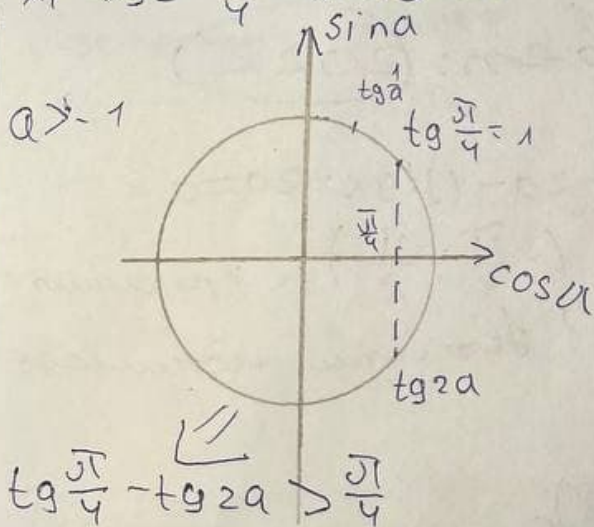 4
sina
tga
1
a > -1
tg π/4 = 1
π/4
cosa
tg2a
tg π/4 - tg2a > π/4